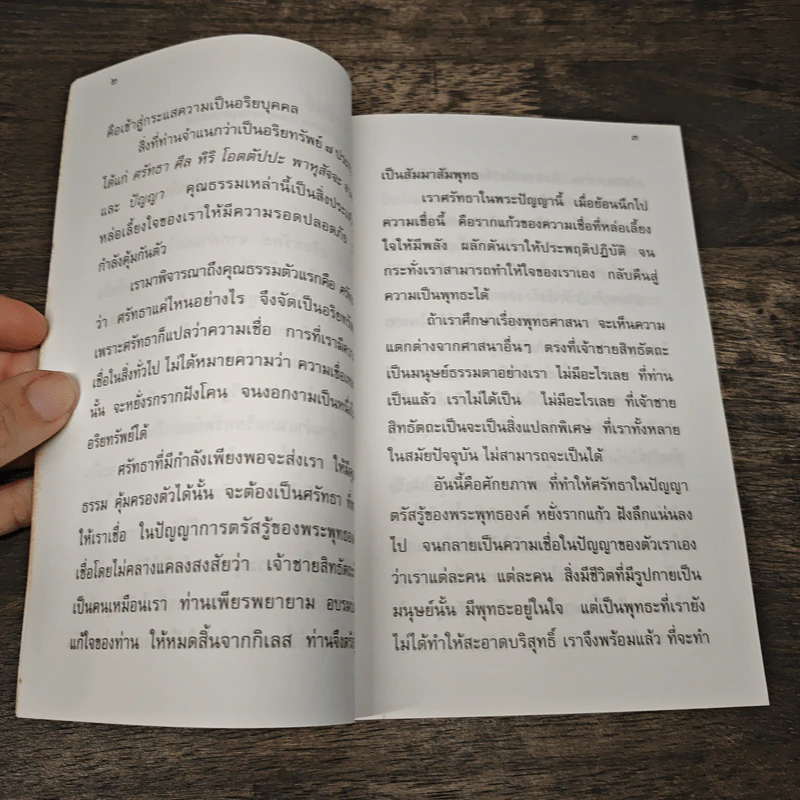 ๒
คือเข้าสู่กระแสความเป็นอริยบุคคล
สิ่งที่ท่านจำแนกว่าเป็นอริยทรัพย์ ๗
ได้แก่ ศรัทธา ศีล หิริ โอตตัปปะ พาหุสัจจะ
และ ปัญญา คุณธรรมเหล่านี้เป็นสิ่ง
หล่อเลี้ยงใจของเราให้มีความรอดปลอดภัย
กำลังคุ้มกันตัว
เรามาพิจารณาถึงคุณธรรมตัวแรกคือ
ว่า ศรัทธาแค่ไหนอย่างไร จึงจัดเป็น
เพราะศรัทธาก็แปลว่าความเชื่อ การที่เรามี
เชื่อในสิ่งทั่วไป ไม่ได้หมายความว่า
นั้น จะหยั่งรกรากฝังโคน จนงอกงามเป็น
อริยทรัพย์ได้
ศรัทธาที่มีกำลังเพียงพอจะส่งเรา
ธรรม คุ้มครองตัวได้นั้น จะต้องเป็นศรัทธา
ให้เราเชื่อ ในปัญญาการตรัสรู้ของ
เชื่อโดยไม่คลางแคลงสงสัยว่า เจ้าชายสิทธัตถะ
เป็นคนเหมือนเรา ท่านเพียรพยายาม
แก้ใจของท่าน ให้หมดสิ้นจากกิเลส
๓
เป็นสัมมาสัมพุทธ
เราศรัทธาในพระปัญญานี้ เมื่อย้อนนึกไป
ความเชื่อนี้ คือรากแก้วของความเชื่อที่หล่อเลี้ยง
ใจให้มีพลัง ผลักดันเราให้ประพฤติปฏิบัติ จน
กระทั่งเราสามารถทำให้ใจของเราเอง กลับคืนสู่
ความเป็นพุทธะได้
ถ้าเราศึกษาเรื่องพุทธศาสนา จะเห็นความ
แตกต่างจากศาสนาอื่นๆ ตรงที่เจ้าชายสิทธัตถะ
เป็นมนุษย์ธรรมดาอย่างเรา ไม่มีอะไรเลย ที่ท่าน
เป็นแล้ว เราไม่ได้เป็น ไม่มีอะไรเลย ที่เจ้าชาย
สิทธัตถะเป็นจะเป็นสิ่งแปลกพิเศษ ที่เราทั้งหลาย
ในสมัยปัจจุบัน ไม่สามารถจะเป็นได้
อันนี้คือศักยภาพ ที่ทำให้ศรัทธาในปัญญา
ตรัสรู้ของพระพุทธองค์ หยั่งรากแก้ว ฝังลึกแน่นลง
ไป จนกลายเป็นความเชื่อในปัญญาของตัวเราเอง
ว่าเราแต่ละคน แต่ละคน สิ่งมีชีวิตที่มีรูปกายเป็น
มนุษย์นั้น มีพุทธะอยู่ในใจ แต่เป็นพุทธะที่เรายัง
ไม่ได้ทำให้สะอาดบริสุทธิ์ เราจึงพร้อมแล้ว ที่จะทำ